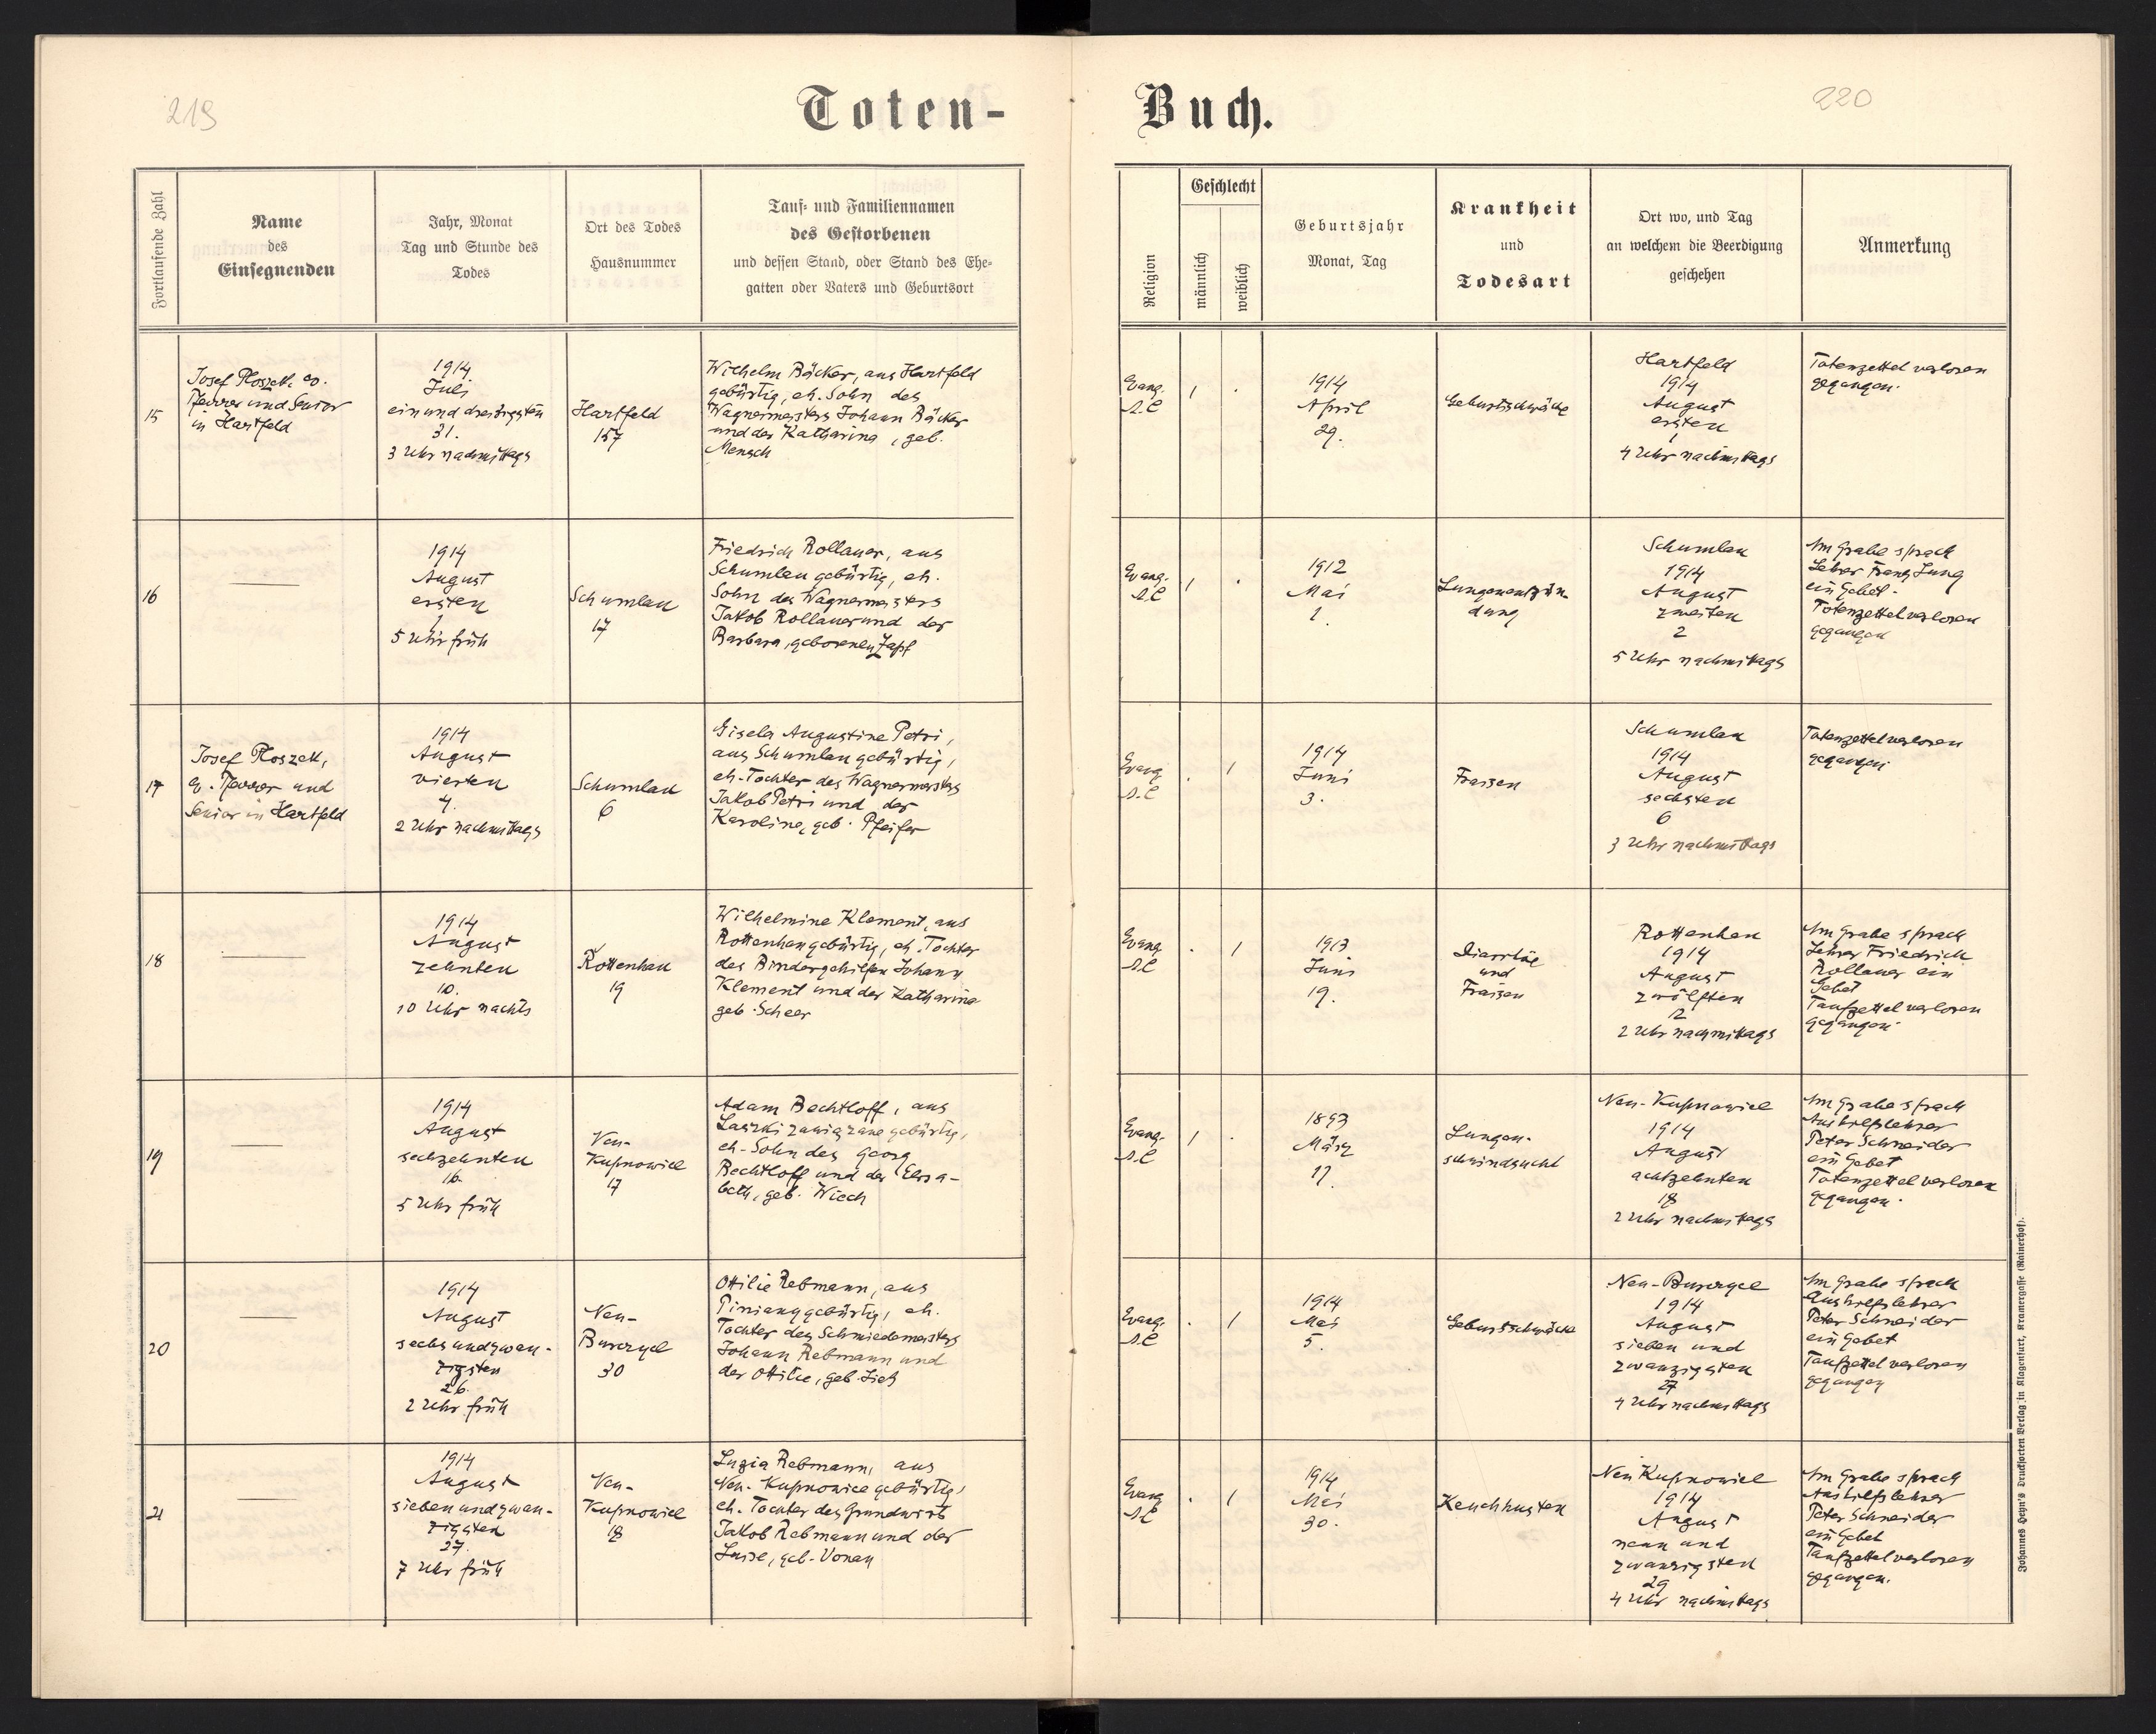 219
Toten-
Buch.
220
Fortlaufende Zahl
Name
des
Einsegnenden
Jahr, Monat
Tag und Stunde des
Todes
Ort des Todes
Hausnummer
Tauf- und Familiennamen
des Gestorbenen
und dessen Stand, oder Stand des Ehe-
gatten oder Vaters und Geburtsort
Religion
Geschlecht
männlich
weiblich
Geburtsjahr
Monat, Tag
Krankheit
und
Todesart
Ort wo, und Tag
an welchem die Beerdigung
geschehen
Anmerkung
15
Josef Ploszek ev.
Pfarrer und Senior
in Hartfeld
1914
Juli
einunddreißigsten
31.
3 Uhr nachmittags
Hartfeld
157
Wilhelm Bäcker, aus Hartfeld
gebürtig, eh. Sohn des
Wagnermeisters Johann Bäcker
und der Katharina, geb.
Mensch
Evang.
A.C
1
.
1914
April
29.
Geburtsschwäche
Hartfeld
1914
August
ersten
1
4 Uhr nachmittags
Totenzettel verloren
gegangen.
16
1914
August
ersten
1
5 Uhr früh
Schumlau
17
Friedrich Rollauer, aus
Schumlau gebürtig, eh.
Sohn des Wagnermeisters
Jakob Rollauer und der
Barbara, geborenen Zapf
Evang.
A.C
1
.
1912
Mai
1.
Lungenentzün-
dung
Schumlau
1914
August
zweiten
2
5 Uhr nachmittags
Am Grabe sprach
Lehrer Franz Jung
ein Gebet.
Totenzettel verloren
gegangen
17
Josef Ploszek,
ev. Pfarrer und
Senior in Hartfeld
1914
August
vierten
4.
2 Uhr nachmittags
Schumlau
6
Gisela Augustine Petri,
aus Schumlau gebürtig,
eh. Tochter des Wagnermeisters
Jakob Petri und der
Karoline, geb. Pfeifer
Evang
A.C
.
1
1914
Juni
3.
Fraisen
Schumlau
1914
August
sechsten
6
3 Uhr nachmittags
Totenzettel verloren
gegangen
18
1914
August
zehnten
10.
10 Uhr nachts
Rottenhan
19
Wilhelmine Klement, aus
Rottenhan gebürtig, eh. Tochter
des Bindergehilfen Johann
Klement und der Katharina
geb. Scheer
Evang
A.C
.
1
1913
Juni
19.
Diarrhöe
und
Fraisen
Rottenhan
1914
August
zwölften
12
2 Uhr nachmittags
Am Grabe sprach
Lehrer Friedrich
Rollauer ein
Gebet
Taufzettel verloren
gegangen.
19
1914
August
sechzehnten
16.
5 Uhr früh
Neu-
Kupnowice
17
Adam Bechtloff, aus
Laszki zawiązane gebürtig,
eh. Sohn des Georg
Bechtloff und der Elisa-
beth, geb. Wiech
Evang.
A.C
1
.
1893
März
17.
Lungen-
schwindsucht
Neu-Kupnowice
1914
August
achtzehnten
18
2 Uhr nachmittags
Am Grabe sprach
Aushilfslehrer
Peter Schneider
ein Gebet
Totenzettel verloren
gegangen.
20
1914
August
sechsundzwan-
zigsten
26.
2 Uhr früh
Neu-
Burczyce
30
Ottilie Rebmann, aus
Piniany gebürtig, eh.
Tochter des Schmiedemeisters
Johann Rebmann und
der Ottilie, geb.
Evang.
A.C
.
1
1914
Mai
5.
Geburtsschwäche
Neu-Burczyce
1914
August
sieben und
zwanzigsten
27
4 Uhr nachmittags
Am Grabe sprach
Aushilfslehrer
Peter Schneider
ein Gebet
Taufzettel verloren
gegangen
21
1914
August
siebenundzwan-
zigsten
27.
7 Uhr früh
Neu-
Kupnowice
18
Luzia Rebmann, aus
Neu-Kupnowice gebürtig,
eh. Tochter des Grundwirts
Jakob Rebmann und der
Luise, geb. Vonau
Evang
A.C
.
1
1914
Mai
30.
Keuchhusten
Neu Kupnowice
1914
August
neun und
zwanzigsten
29
4 Uhr nachmittags
Am Grabe sprach
Aushilfslehrer
Peter Schneider
ein Gebet
Taufzettel verloren
gegangen.
Johannes Heyn's Drucksorten Verlag in Klagenfurt, Kramergasse (Rainerhof).